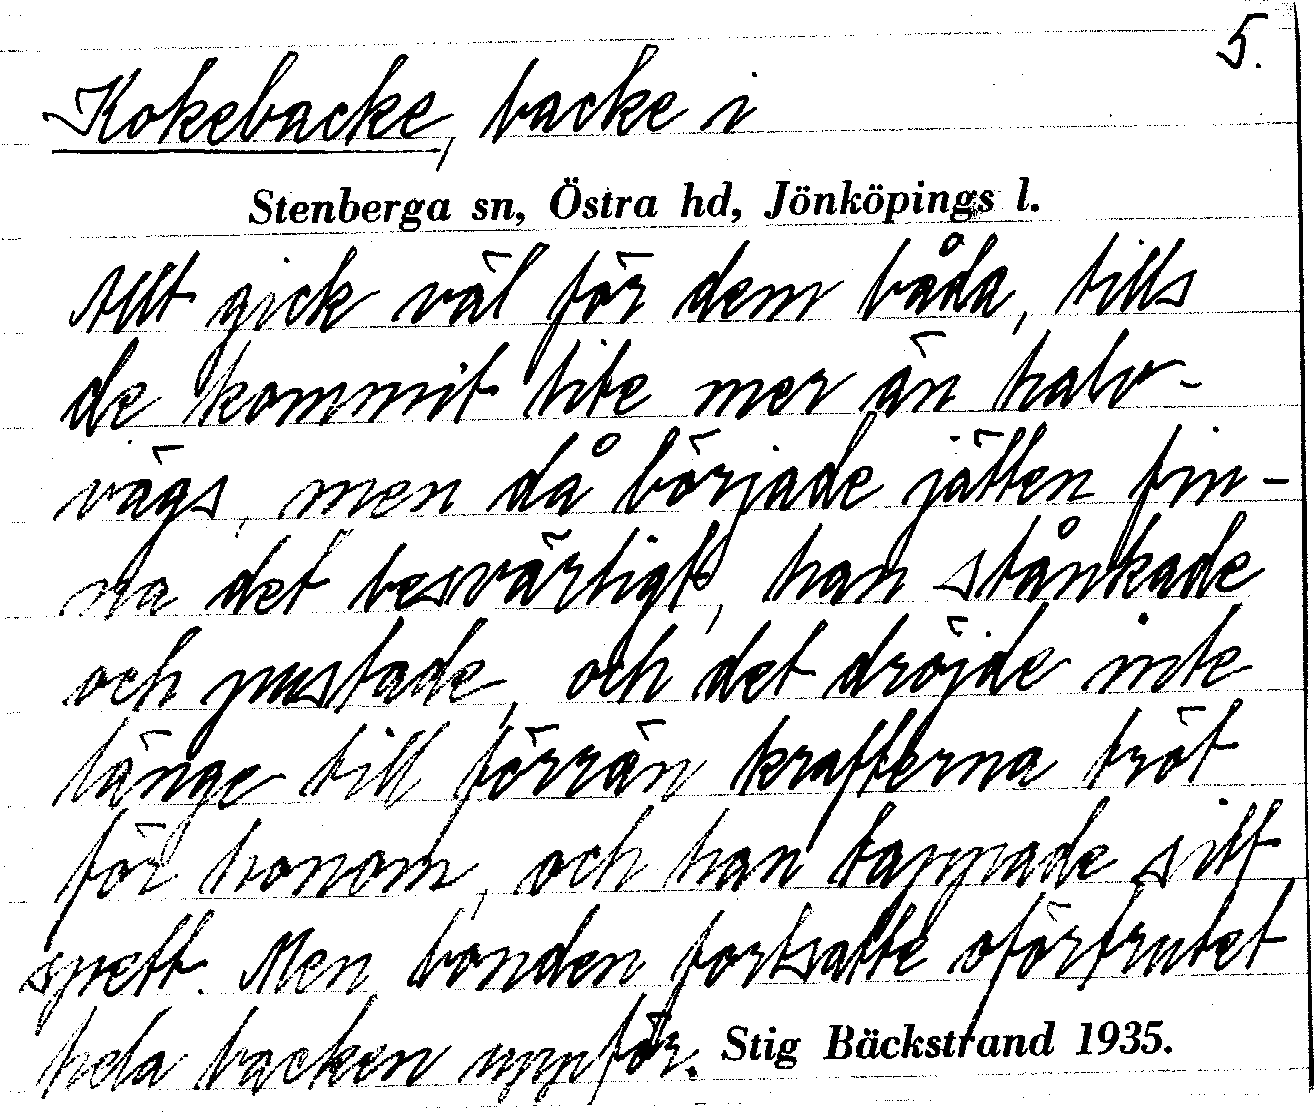 5.
Kokebacke, backe i
Stenberga sn, Östra hd, Jönköpings l.
Allt gick väl för dem båda, tills
de kommit lite mer än halv-
vägs, men då började jätten fin-
na det besvärligt, han stånkade
och pustade, och det dröjde inte
länge till förrän krafterna tröt
för honom, och han tappade sitt
spett. Men bonden fortsatte oförtrutet
hela backen uppför.
Stig Bäckstrand 1935.